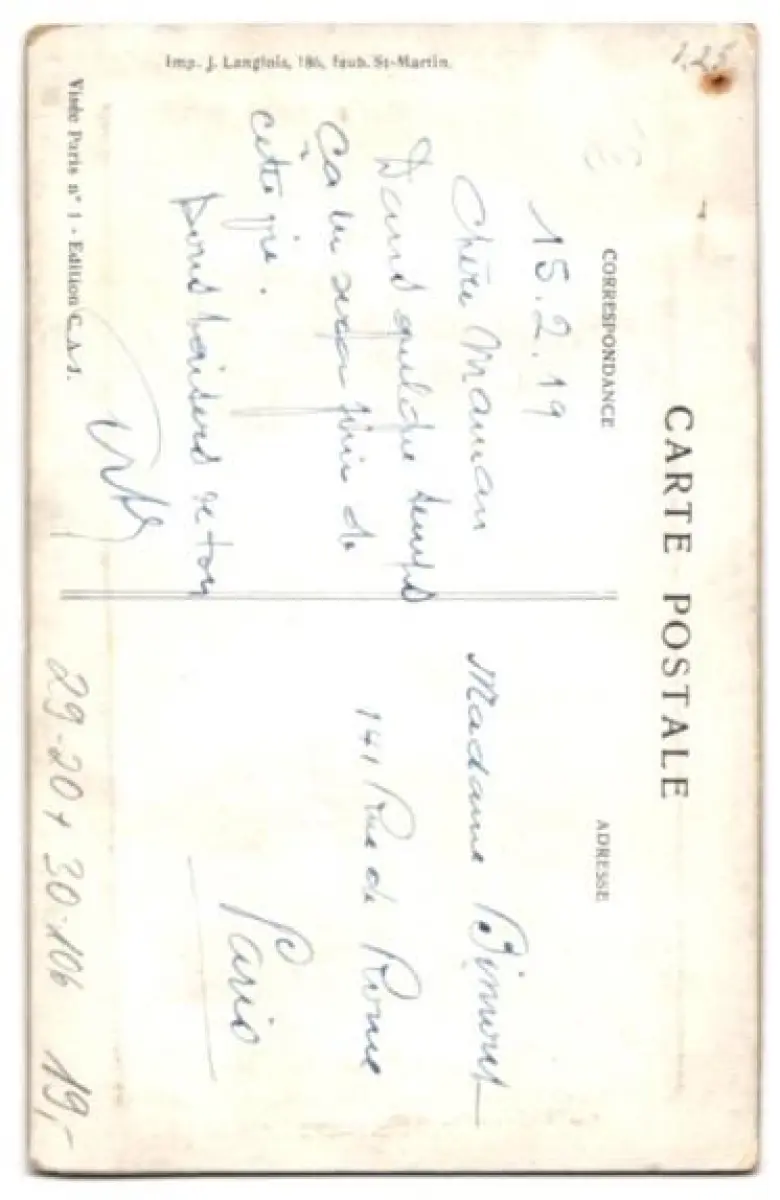 CARTE POSTALE
CORRESPONDANCE
ADRESSE
15.2.19
Chère Maman
Dans quelque temps
Ça me sera fini de
cette
bons baisers de ton
Madame
141 Rue de Rome
Paris
Visée Paris n° 1 - Edition C.A.S.
Imp. J. Langlois, 186, faub. St-Martin.
1,25
29-20 + 30-106 19,-